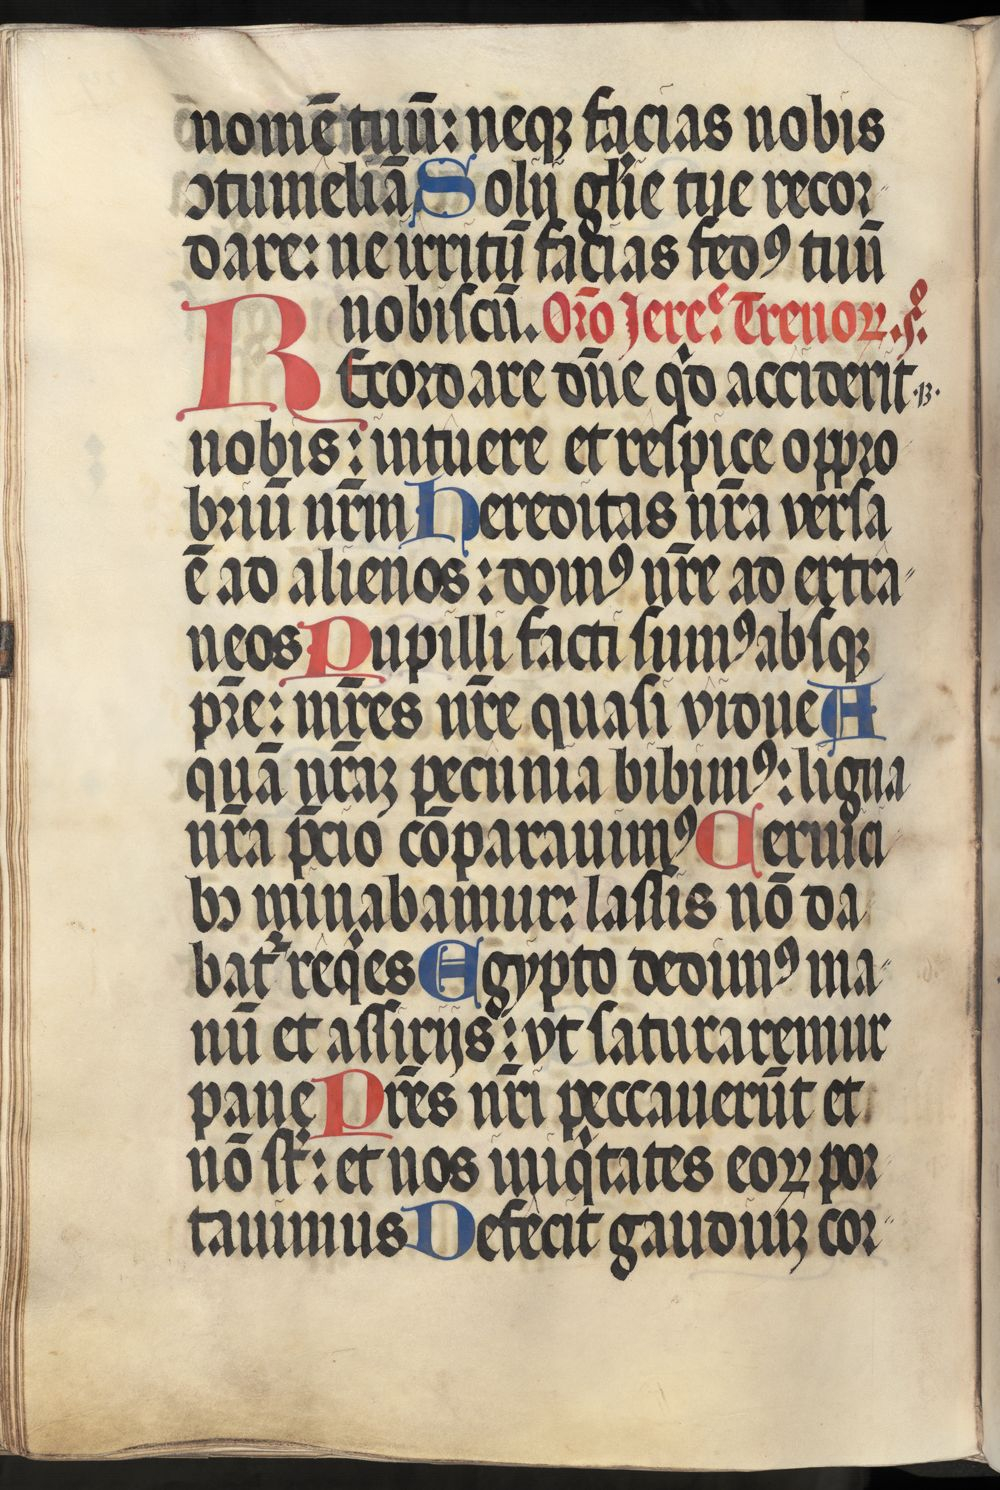 nomē tuū: neqꝫ facias nobis
ɔtumeliā Solij gl'ie tue recor-
dare: ne irritū facias fedꝰ tuū
nobiscū. Orō Jereᵉ. Trenoꝝ. f°.
REcordare dn̄e qd̓ acciderit .13.
nobis: intuere et respice oppro
briū nr̄m hereditas nr̄a versa
ē ad alienos: domꝰ nr̄e ad extra-
neos Pupilli facti sumꝰ absqꝫ
pr̄e: mr̄es nr̄e quasi vidue A
quā nr̄aꝫ pecunia bibimꝰ: ligna
nr̄a p̄cio cōparauimꝰ Ceruici
bꝫ minabamur: lassis nō da
bat᷑ req̓es Egypto dedimꝰ ma-
nū et assirijs: vt saturaremur
pane Pr̄es nr̄i peccauerūt et
nō st̄: et nos iniq̓tates eoꝝ por-
tauimus Defecit gaudiuꝫ cor-